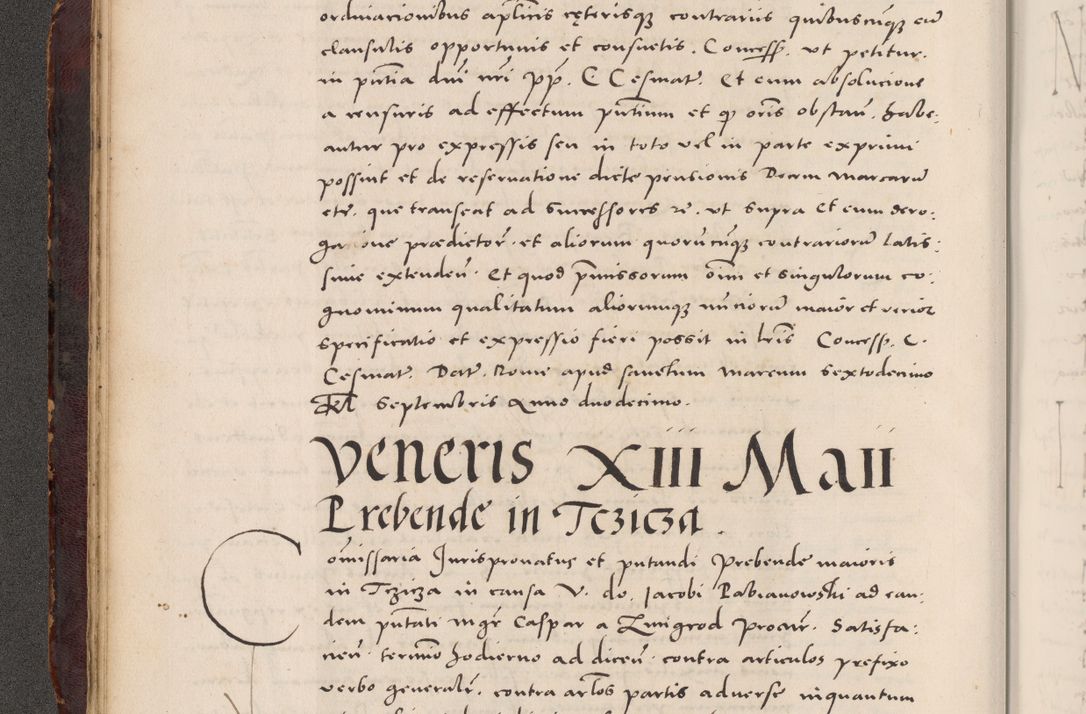 ordinacionibus aplicis cęterisqz contrariis quibuscunqz cū
clausulis opportunis et consuetis. Concess. ut petitur.
in pntia dni nri pp. C Cesmat. Et cum absolucione
a censuris ad effectum pntium et q oris obstan. habe:
antur pro expressis seu in toto vel in parte exprimi
possint et de reservatione dicte pensionis Decem marcarū
etc. que transeat ad successores etc. ut supra Et cum dero:
gacione prædictor. et aliorum quorūcunqz contrariorū latis:
sime extenden. Et quod pmissorum oim et singulorum co:
gnominum qualitatum aliorumqz nunciorū maior et verior
specificatio et expressio fieri possit in lris Concess. C.
Cesmat. Dat. Rome apud sanctum marcum sextodecimo
Kl Septembris Anno duodecimo.
Veneris XIII Maii
Prebende in Tczicza.
Comissaria Jurispronatus et putandi Prebende maioris
in Tczicza in causa V. do. Jacobi Pabianowski ad ean:
dem pntati mgr Caspar a Zmigrod Procur. Satisfa:
cien. termino hodierno ad dicen. contra articulos prefixo
verbo generali. contra artlos partis adverse inquantum